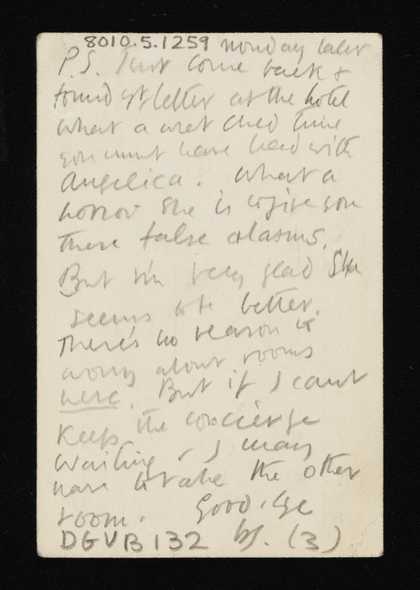 8010.5.1259 Monday later
P.S. Just come back &
found yr letter at the hotel
What a wretched time
you must have had with
Angelica. What a
horror she is to give you
these false alarms.
But I'm very glad she
seems to be better.
There's no reason to
worry about rooms
here. But if I can't
keep the concierge
waiting, I may
have to take the other
room. Good-bye
DGVB132 (3)